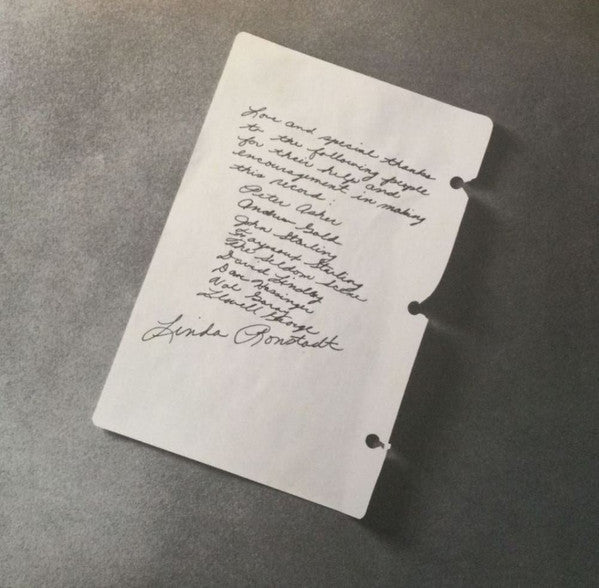 Love and special thanks
to the following people
for their help and
encouragement in making
this record:
Peter Asher
Andrew Gold
John Starling
Fayssoux Starling
The Seldom Scene
David Lindley
Dan
Nat
Lowell George
Linda Ronstadt